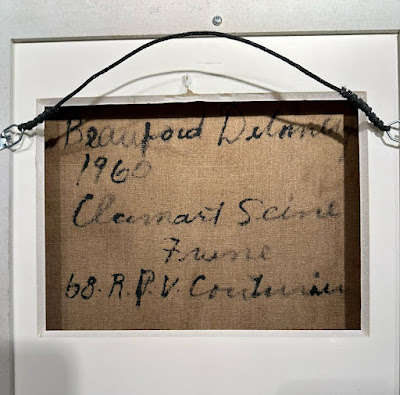 Beauford Delaney
1960
Clamart Seine
68. R. P. V. Couturier